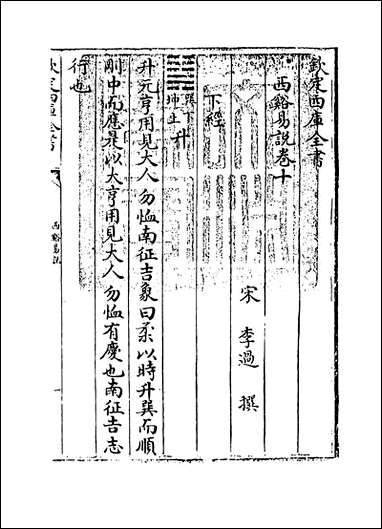 欽定四庫全書
西谿易說卷十
宋 李過 撰
下經
巽下
坤上
升
升元亨用見大人勿恤南征吉彖曰柔以時升巽而順
剛中而應是以大亨用見大人勿恤有慶也南征吉志
行也
欽定四庫全書
西谿易說